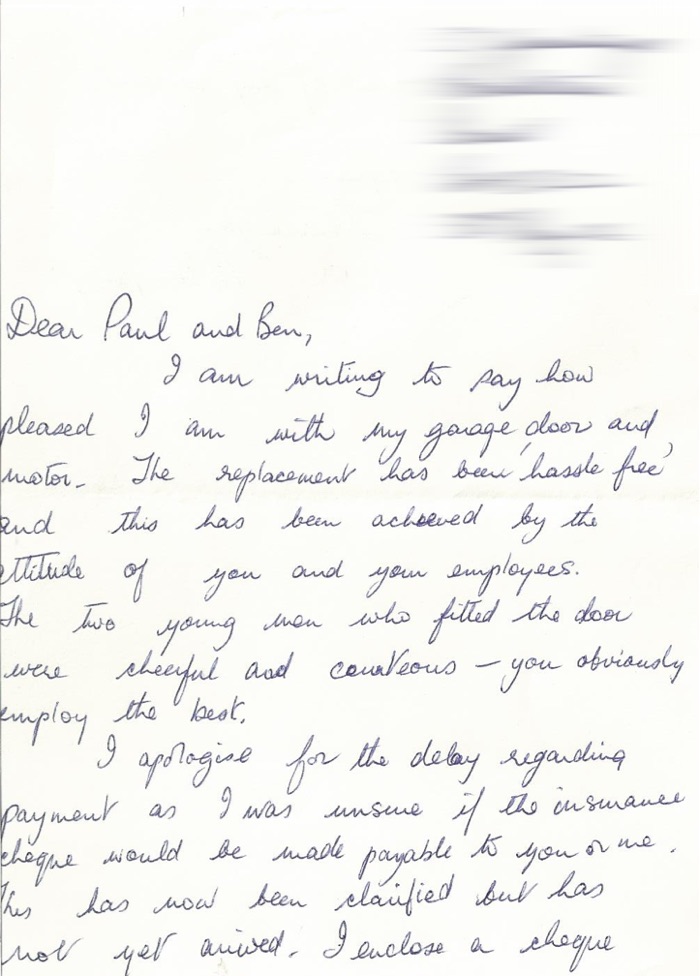 Dear Paul and Ben,
I am writing to say how
pleased I am with my garage door and
motor. The replacement has been 'hassle free'
and this has been achieved by the
attitude of you and your employees.
The two young men who fitted the door
were cheerful and courteous – you obviously
employ the best.
I apologise for the delay regarding
payment as I was unsure if the insurance
cheque would be made payable to you or me.
This has now been clarified but has
not yet arrived. I enclose a cheque